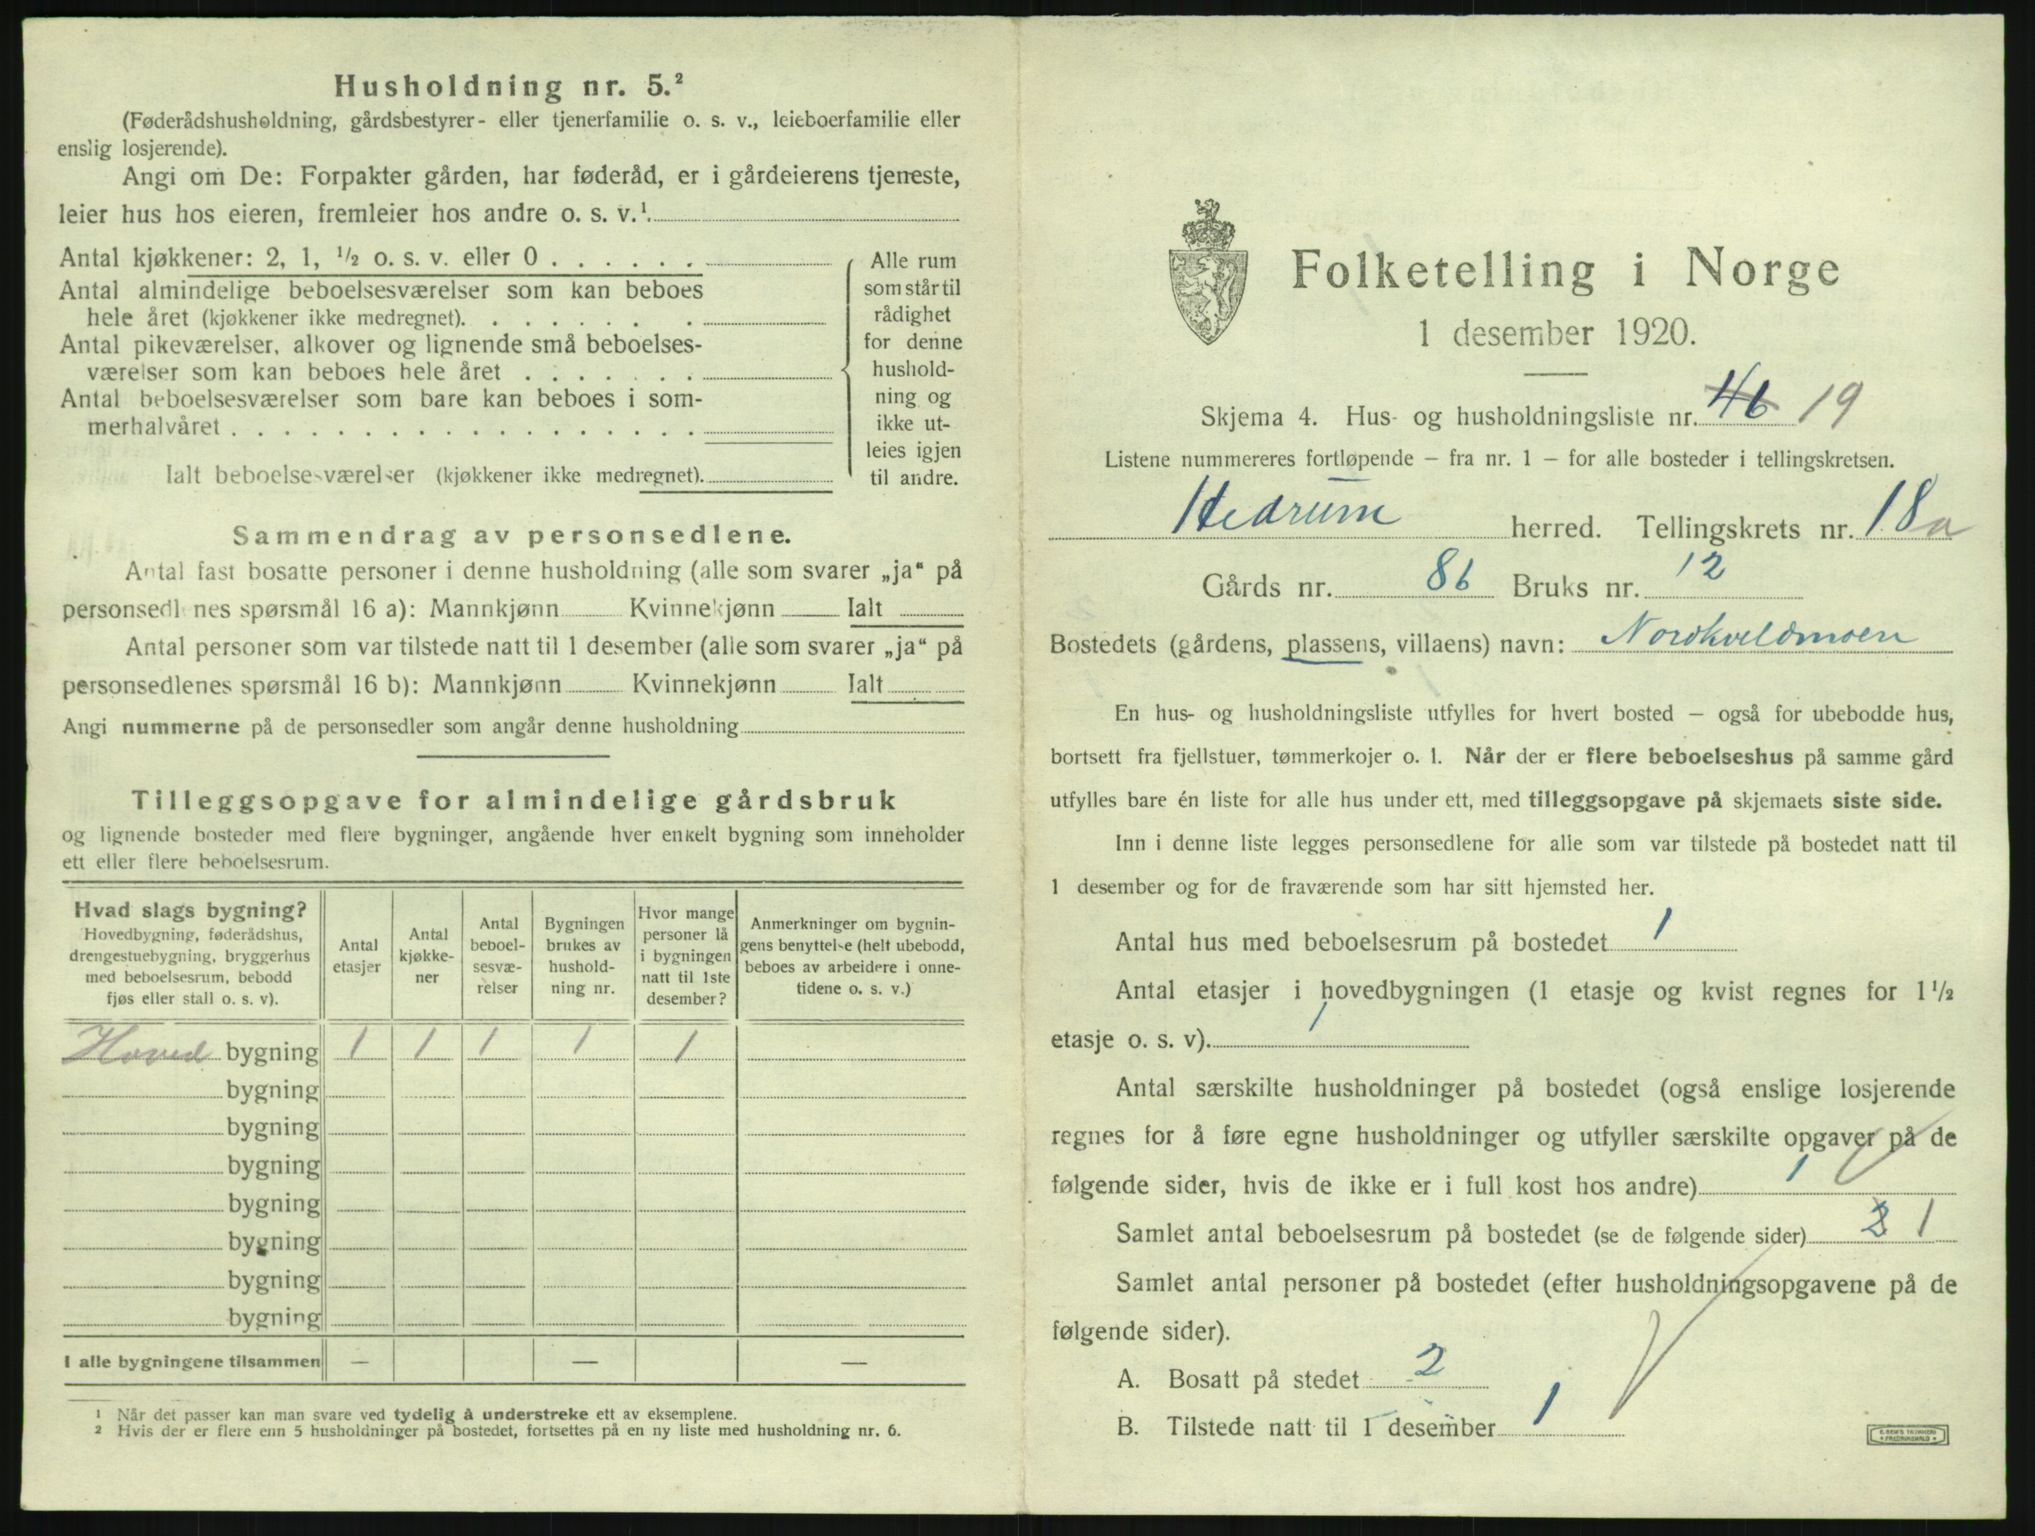 Husholdning nr. 5.²
(Føderådshusholdning, gårdsbestyrer- eller tjenerfamilie o. s. v., leieboerfamilie eller
enslig losjerende).
Angi om De: Forpakter gården, har føderåd, er i gårdeierens tjeneste,
leier hus hos eieren, fremleier hos andre o. s. v.¹
Antal kjøkkener: 2, 1, ½ o. s. v. eller 0 . . . . . .
Antal almindelige beboelsesværelser som kan beboes
hele året (kjøkkener ikke medregnet). . . . . . . .
Antal pikeværelser, alkover og lignende små beboelses-
værelser som kan beboes hele året . . . . . . .
Antal beboelsesværelser som bare kan beboes i som-
merhalvåret . . . . . . . . . . . . . . . . . .
Ialt beboelsesværelser (kjøkkener ikke medregnet).
Alle rum
som står til
rådighet
for denne
hushold-
ning og
ikke ut-
leies igjen
til andre.
Sammendrag av personsedlene.
Antal fast bosatte personer i denne husholdning (alle som svarer „ja“ på
personsedlenes spørsmål 16 a): Mannkjønn Kvinnekjønn Ialt
Antal personer som var tilstede natt til 1 desember (alle som svarer „ja“ på
personsedlenes spørsmål 16 b): Mannkjønn Kvinnekjønn Ialt
Angi nummerne på de personsedler som angår denne husholdning
Tilleggsopgave for almindelige gårdsbruk
og lignende bosteder med flere bygninger, angående hver enkelt bygning som inneholder
ett eller flere beboelsesrum.
Hvad slags bygning?
Hovedbygning, føderådshus,
drengestuebygning, bryggerhus
med beboelsesrum, bebodd
fjøs eller stall o. s. v).
Antal
etasjer
Antal
kjøkke-
ner
Antal
beboel-
sesvæ-
relser
Bygningen
brukes av
hushold-
ning nr.
Hvor mange
personer lå
i bygningen
natt til 1ste
desember?
Anmerkninger om bygnin-
gens benyttelse (helt ubebodd,
beboes av arbeidere i onne-
tidene o. s. v.)
Hoved bygning 1 1 1 1 1
bygning
bygning
bygning
bygning
bygning
bygning
bygning
I alle bygningene tilsammen — — —
¹ Når det passer kan man svare ved tydelig å understreke ett av eksemplene.
² Hvis der er flere enn 5 husholdninger på bostedet, fortsettes på en ny liste med husholdning nr. 6.
Folketelling i Norge
1 desember 1920.
Skjema 4. Hus- og husholdningsliste nr. 46 19
Listene nummereres fortløpende – fra nr. 1 – for alle bosteder i tellingskretsen.
Hedrum herred. Tellingskrets nr. 18a
Gårds nr. 86 Bruks nr. 12
Bostedets (gårdens, plassens, villaens) navn: Nordkveldmoen
En hus- og husholdningsliste utfylles for hvert bosted – også for ubebodde hus,
bortsett fra fjellstuer, tømmerkojer o. l. Når der er flere beboelseshus på samme gård
utfylles bare én liste for alle hus under ett, med tilleggsopgave på skjemaets siste side.
Inn i denne liste legges personsedlene for alle som var tilstede på bostedet natt til
1 desember og for de fraværende som har sitt hjemsted her.
Antal hus med beboelsesrum på bostedet 1
Antal etasjer i hovedbygningen (1 etasje og kvist regnes for 1½
etasje o. s. v). 1
Antal særskilte husholdninger på bostedet (også enslige losjerende
regnes for å føre egne husholdninger og utfyller særskilte opgaver på de
følgende sider, hvis de ikke er i full kost hos andre) 1
Samlet antal beboelsesrum på bostedet (se de følgende sider) 2 1
Samlet antal personer på bostedet (efter husholdningsopgavene på de
følgende sider).
A. Bosatt på stedet 2
B. Tilstede natt til 1 desember 1